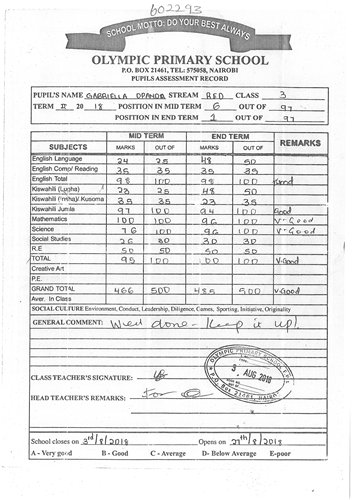 602293
SCHOOL MOTTO: DO YOUR BEST ALWAYS
OLYMPIC PRIMARY SCHOOL
P.O. BOX 21461, TEL: 575058, NAIROBI
PUPILS ASSESSMENT RECORD
PUPIL'S NAME GABRIELLA OPANDA STREAM RED CLASS 3
TERM II 20 18 POSITION IN MID TERM 6 OUT OF 97
POSITION IN END TERM 1 OUT OF 97
MID TERM END TERM
SUBJECTS MARKS OUT OF MARKS OUT OF REMARKS
English Language 24 25 48 50
English Comp/ Reading 35 35 35 35
English Total 98 100 98 100 Good
Kiswahili (Lugha) 23 25 48 50
Kiswahili (Insha)/ Kusoma 35 35 23 35
Kiswahili Jumla 97 100 94 100 Good
Mathematics 100 100 96 100 V-Good
Science 76 100 96 100 V-Good
Social Studies 26 30 30 30
R.E 50 50 50 50
TOTAL 95 100 100 100 V-Good
Creative Art
P.E
GRAND TOTAL 466 500 485 500 V-Good
Aver. In Class
SOCIAL CULTURE Environment, Conduct, Leadership, Diligence, Games, Sporting, Initiative, Originality
GENERAL COMMENT: Well done - Keep it up!
OLYMPIC PRIMARY SCHOOL
3 AUG 2018
P.O. Box 21461, Nairobi
CLASS TEACHER'S SIGNATURE:
HEAD TEACHER'S REMARKS:
School closes on 3rd/8/2018 Opens on 27th/8/2018
A - Very good B - Good C - Average D- Below Average E-poor